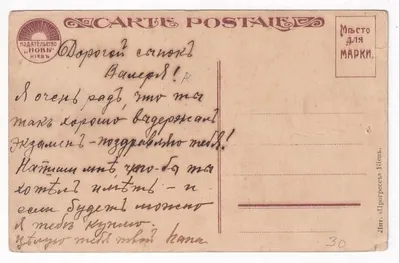 CARTE POSTALE
ИЗДАТЕЛЬСТВО
„НОВЬ“
КІЕВЪ
Мѣсто
для
МАРКИ.
Дорогой сынокъ
Валерій!
Я очень радъ, что ты
такъ хорошо выдержалъ
экзаменъ - поздравляю тебя!
Напиши мнѣ, что-бы ты
хотѣлъ имѣть - и
если будетъ можно
я тебѣ куплю.
Цѣлую тебя твой папа.
Лит. „Прогрессъ“ Кіевъ.
30